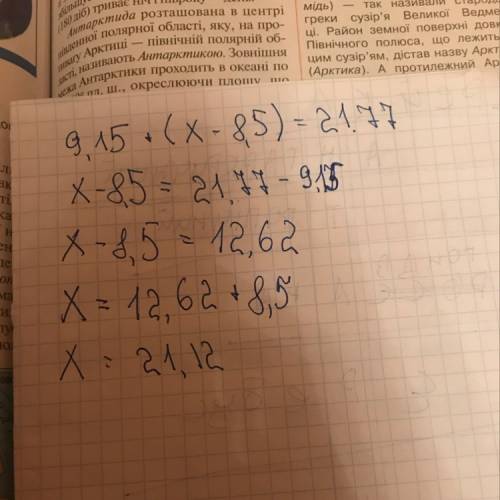 (180 діб) триває ніч і півроку
Антарктида розташована в центрі
південної полярної області, яку, на про-
тивагу Арктиці — північній полярній об-
ласті, називають Антарктикою. Зовнішня
межа Антарктики проходить в океані по
пд. ш., окреслюючи площу, що
мідь) — так називали стародавні
греки сузір'я Великої Ведме
ці. Район земної поверхні дов
Північного полюса, що лежить
цим сузір'ям, дістав назву Аркт
(Арктика). А протилежний Ар
9,15 + (x - 8,5) = 21.77
x - 8,5 = 21,77 - 9,15
x - 8,5 = 12,62
x = 12,62 + 8,5
x = 21,12